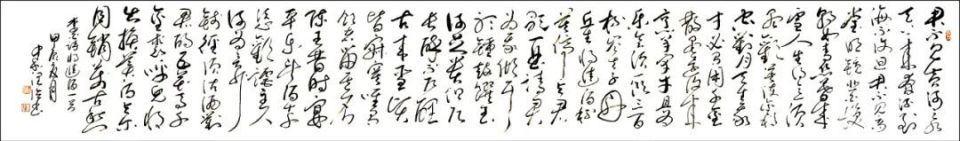 君不见黄河之水
天上来奔流到
海不复回君不见高
堂明镜悲白发
朝如青丝暮成
雪人生得意须
尽欢莫使金樽
空对月天生我
材必有用千金
散尽还复来
烹羊宰牛且为
乐会须一饮三百
杯岑夫子丹
丘生将进酒杯
莫停与君
歌一曲请君
为我倾耳
听钟鼓馔玉
何足贵但愿
长醉不愿醒
古来圣贤
皆寂寞惟有
饮者留其名
陈王昔时宴
平乐斗酒十千
恣欢谑主人
何为言少
钱径须沽取对
君酌五花马千
金裘呼儿将
出换美酒与尔
同销万古愁
李白诗将进酒一首
甲辰夏月